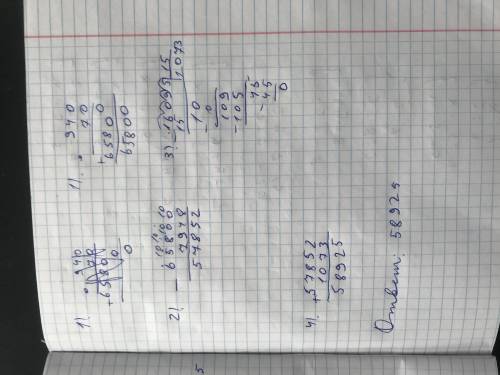 1). × 940
70
+ 6580 0
0
1). × 940
70
+ 0
6580
65800
2). 10 10 10
- 65800
7948
57852
3). 16095 | 15
15 | 1073
- 10
0
109
- 105
45
- 45
0
4). + 57852
1073
58925
Ответ: 58925
5